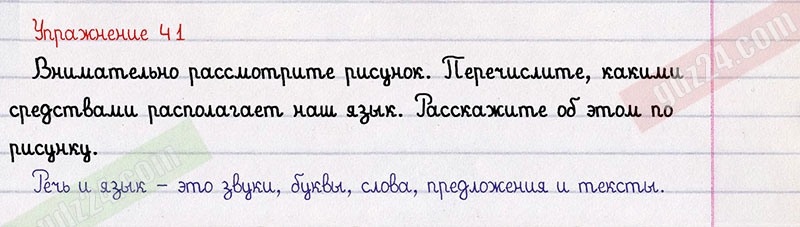 Упражнение 41
Внимательно рассмотрите рисунок. Перечислите, какими
средствами располагает наш язык. Расскажите об этом по
рисунку.
Речь и язык – это звуки, буквы, слова, предложения и тексты.
gdz24.com
gdz24.com